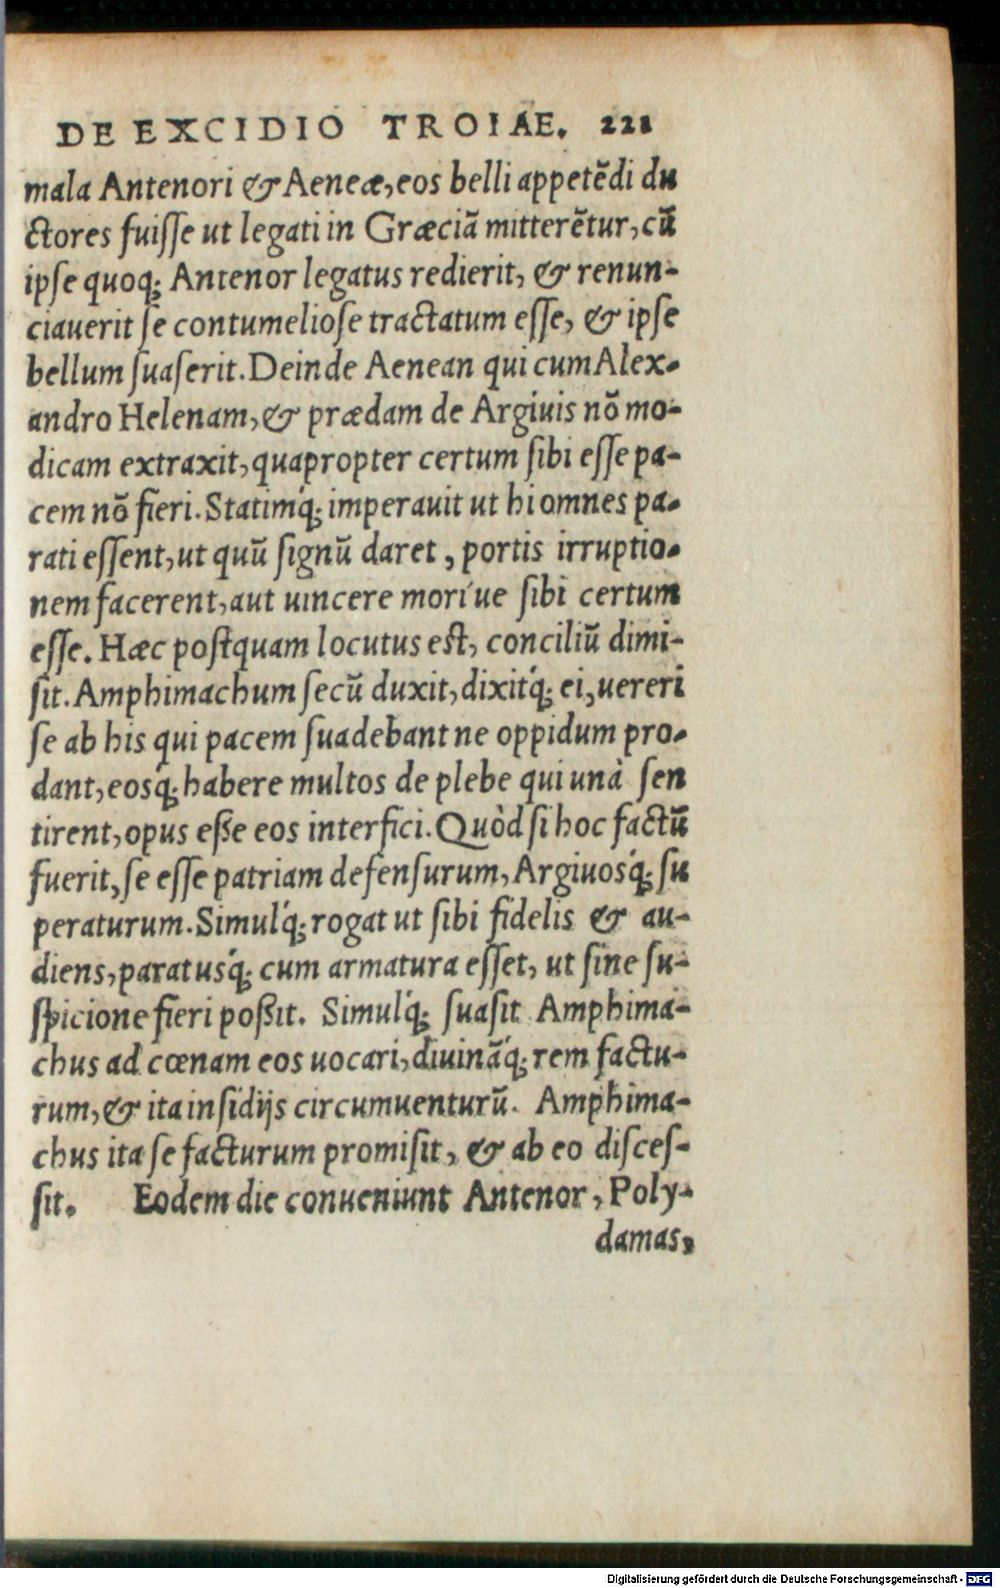 DE EXCIDIO TROIAE. 221
mala Antenori & Aeneæ, eos belli appetẽdi du
ctores fuiſſe ut legati in Græciã mitterẽtur, cũ
ipſe quoq; Antenor legatus redierit, & renun-
ciauerit ſe contumelioſe tractatum eſſe, & ipſe
bellum ſuaſerit. Deinde Aenean qui cum Alex-
andro Helenam, & prædam de Argiuis nõ mo-
dicam extraxit, quapropter certum ſibi eſſe pa-
cem nõ fieri. Statimq́; imperauit ut hi omnes pa-
rati eſſent, ut quũ ſignũ daret, portis irruptio-
nem facerent, aut uincere moriúe ſibi certum
eſſe. Hæc poſtquam locutus eſt, conciliũ dimi-
ſit. Amphimachum ſecũ duxit, dixitq́; ei, uereri
ſe ab his qui pacem ſuadebant ne oppidum pro-
dant, eosq́; habere multos de plebe qui unà ſen
tirent, opus eße eos interfici. Quòd ſi hoc factũ
fuerit, ſe eſſe patriam defenſurum, Argiuosq́; ſu
peraturum. Simulq́; rogat ut ſibi fidelis & au-
diens, paratusq́; cum armatura eſſet, ut ſine ſu-
ſpicione fieri poßit. Simulq́; ſuaſit Amphima-
chus ad cœnam eos uocari, diuinãq́; rem factu-
rum, & ita inſidijs circumuenturũ. Amphima-
chus ita ſe facturum promiſit, & ab eo diſceſ-
ſit. Eodem die conueniunt Antenor, Poly-
damas,
Digitalisierung gefördert durch die Deutsche Forschungsgemeinschaft - DFG